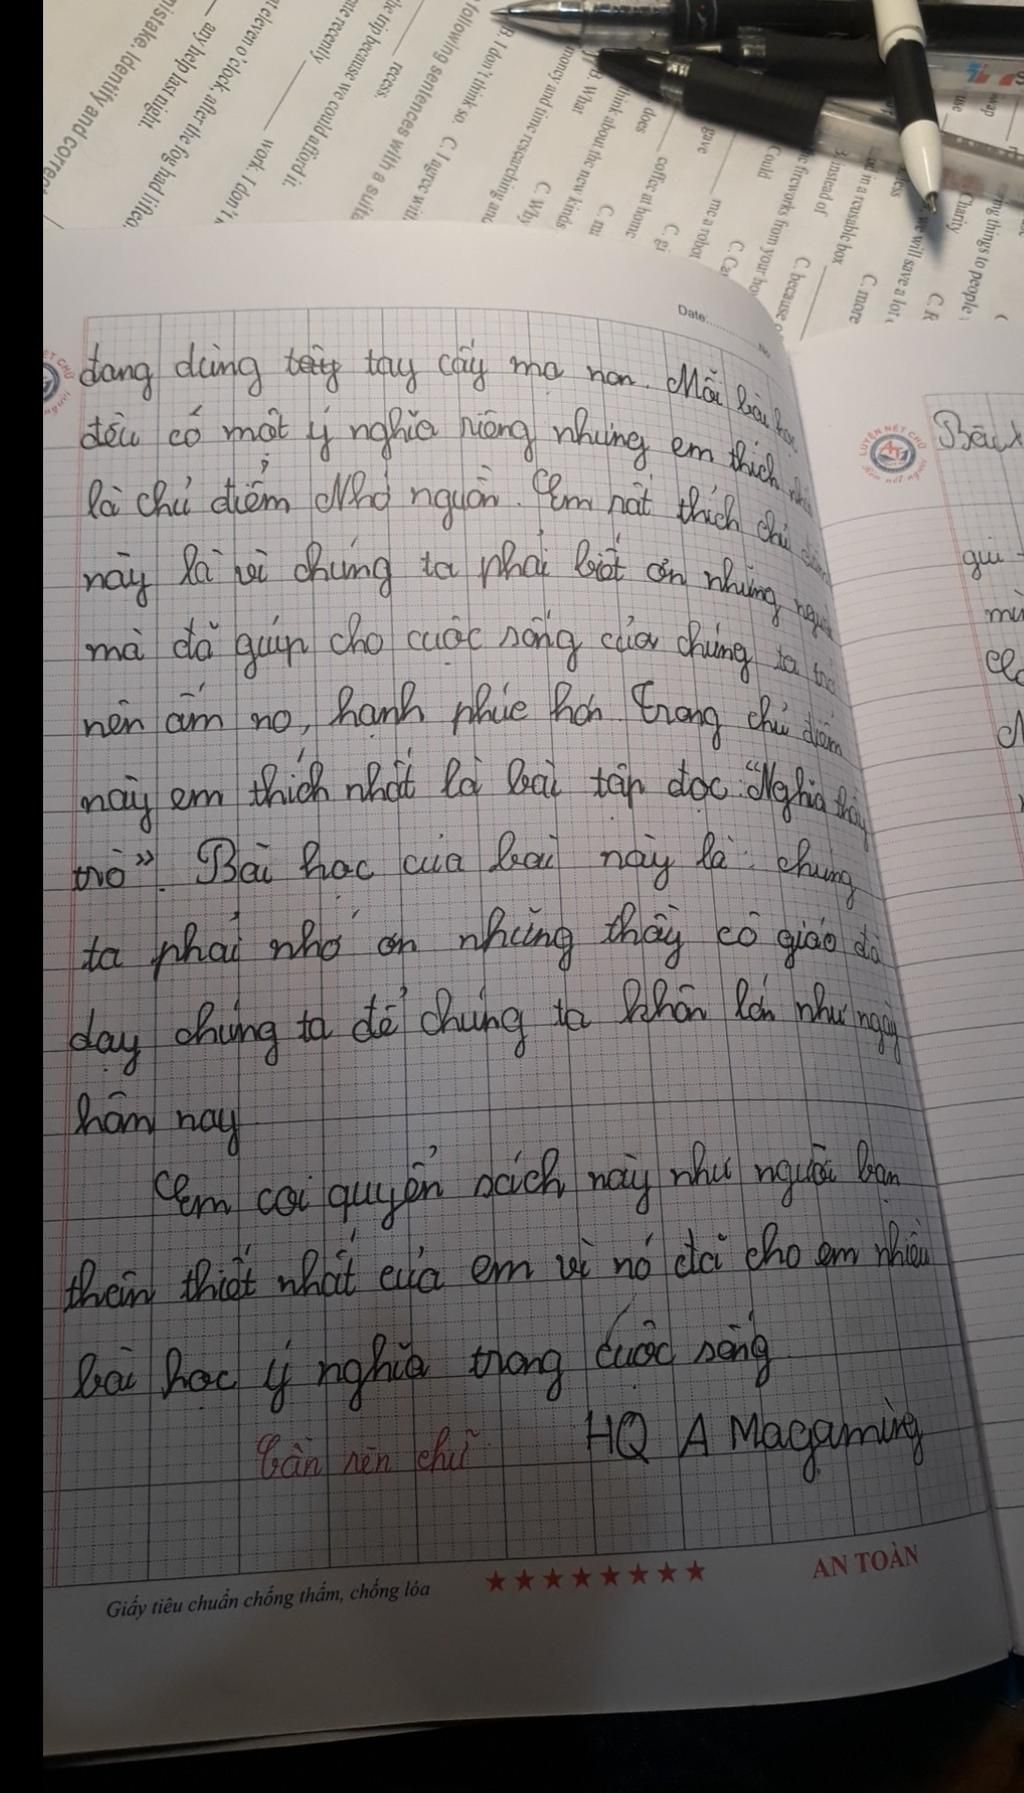 mistake. Identify and correct
any help last night.
eleven o'clock, after the fog had lifted
work. I don't
ate recently
the trip because we could afford it.
recess.
following sentences with a suita
B. I don't think so. C. I agree with
money and time researching and
B. What C. Why
think about the new kinds
C. m
does coffee at home
C. gi
gave me a robot
C. Ca
Could
e fireworks from your ho
C. because
3. instead of
use in a reusable box
C. more
less
we will save a lot
C. R
Charity
ing things to people
use
map
Date: No
đang dùng tay cấy mạ non. Mỗi bài học
đều có một ý nghĩa riêng nhưng em thích nhất
là chủ điểm Nhớ nguồn. Em rất thích chủ điểm
này là vì chúng ta phải biết ơn những người
mà đã giúp cho cuộc sống của chúng ta trở
nên ấm no, hạnh phúc hơn. Trong chủ điểm
này em thích nhất là bài tập đọc: "Nghĩa thầy
trò". Bài học của bài này là: chúng
ta phải nhớ ơn những thầy cô giáo đã
dạy chúng ta để chúng ta khôn lớn như ngày
hôm nay
Em coi quyển sách này như người bạn
thân thiết nhất của em vì nó đã cho em nhiều
bài học ý nghĩa trong cuộc sống
Cần rèn chữ HQ A Magaming
Giấy tiêu chuẩn chống thấm, chống lóa ★★★★★★★★ AN TOÀN
LUYỆN NÉT CHỮ
Rèn nết người
Bài
gui